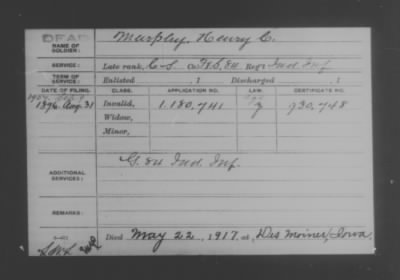 DEAD
NAME OF SOLDIER: Murphy, Henry C.
SERVICE: Late rank, C S, Co. F & S, 84 Reg't Ind. Inf.
TERM OF SERVICE: Enlisted , 1 Discharged , 1
DATE OF FILING. CLASS. APPLICATION NO. LAW. CERTIFICATE NO.
1896. Aug. 31 Invalid, 1.180,741 930,748
Widow,
Minor,
ADDITIONAL SERVICES: G. 84 Ind. Inf.
REMARKS:
Died May 22, 1917, at Des Moines, Iowa.